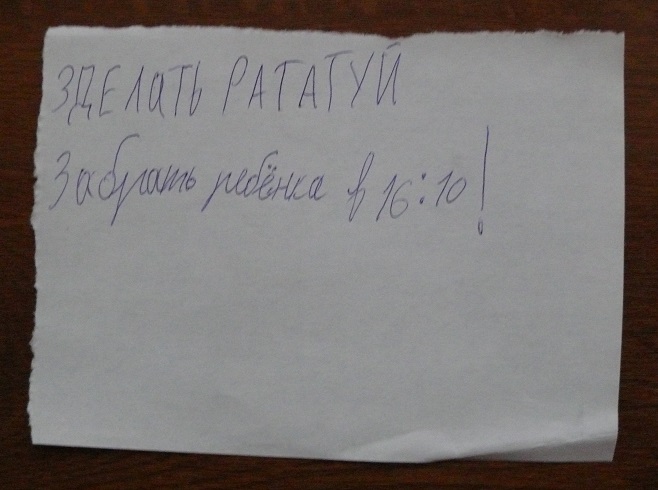 ЗДЕЛАТЬ РАТАТУЙ
Забрать ребёнка в 16:10!